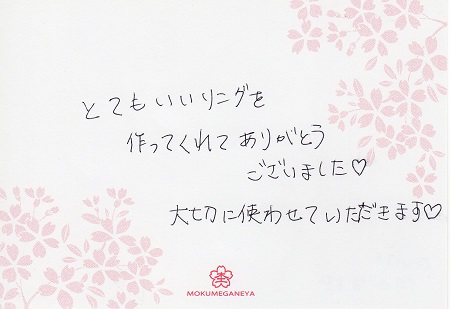 とてもいいリングを
作ってくれてありがとう
ございました♡
大切に使わせていただきます♡
MOKUMEGANEYA